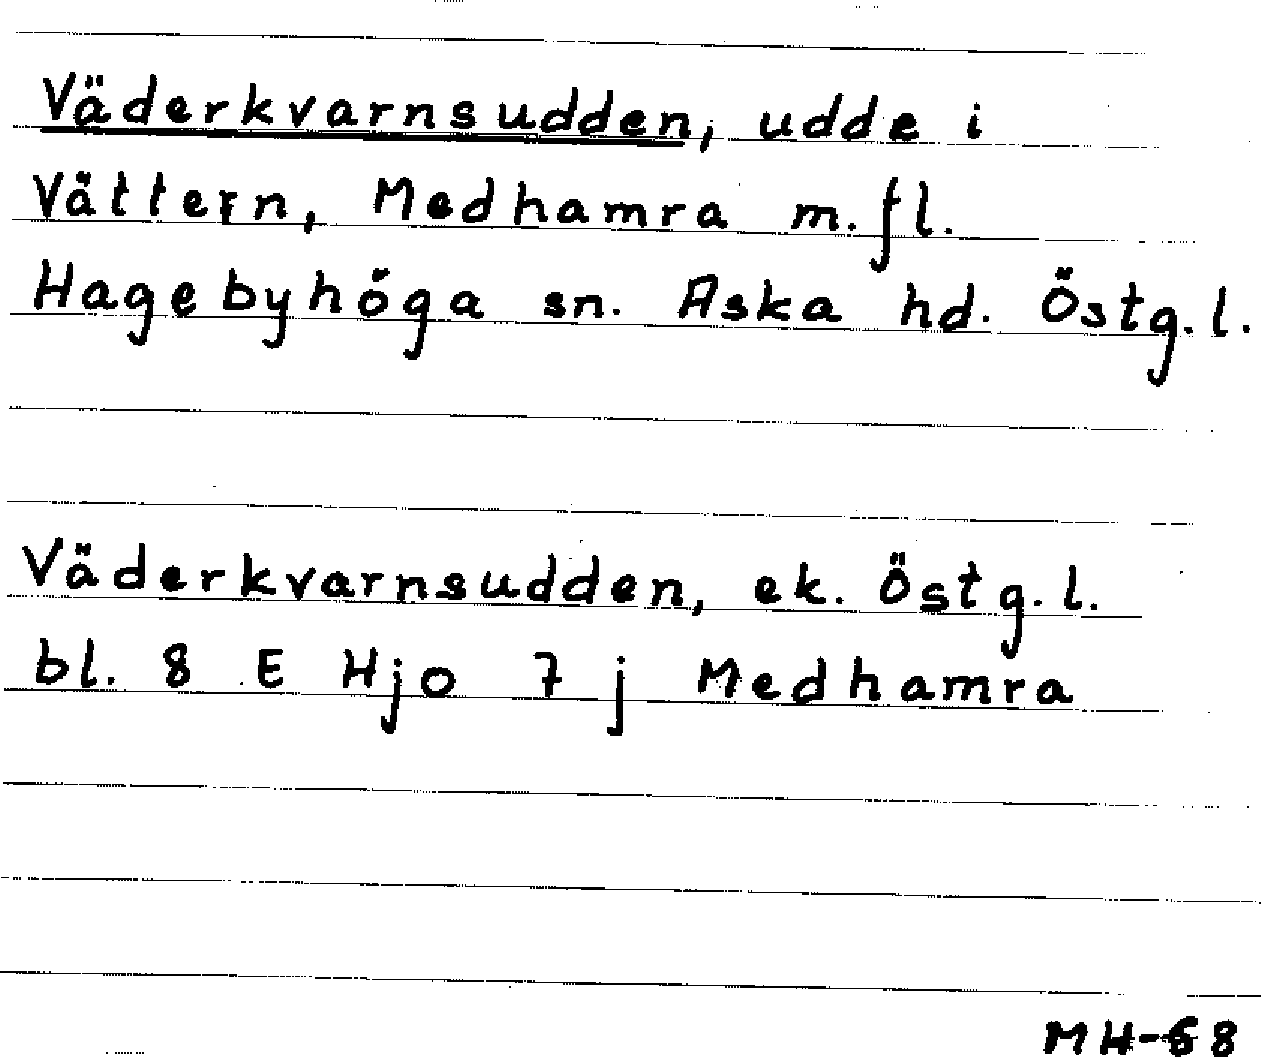 Väderkvarnsudden, udde i
Vättern, Medhamra m.fl.
Hagebyhöga sn. Aska hd. Östg.l.
Väderkvarnsudden, ek. Östg.l.
bl. 8 E Hjo 7 j Medhamra
MH-68